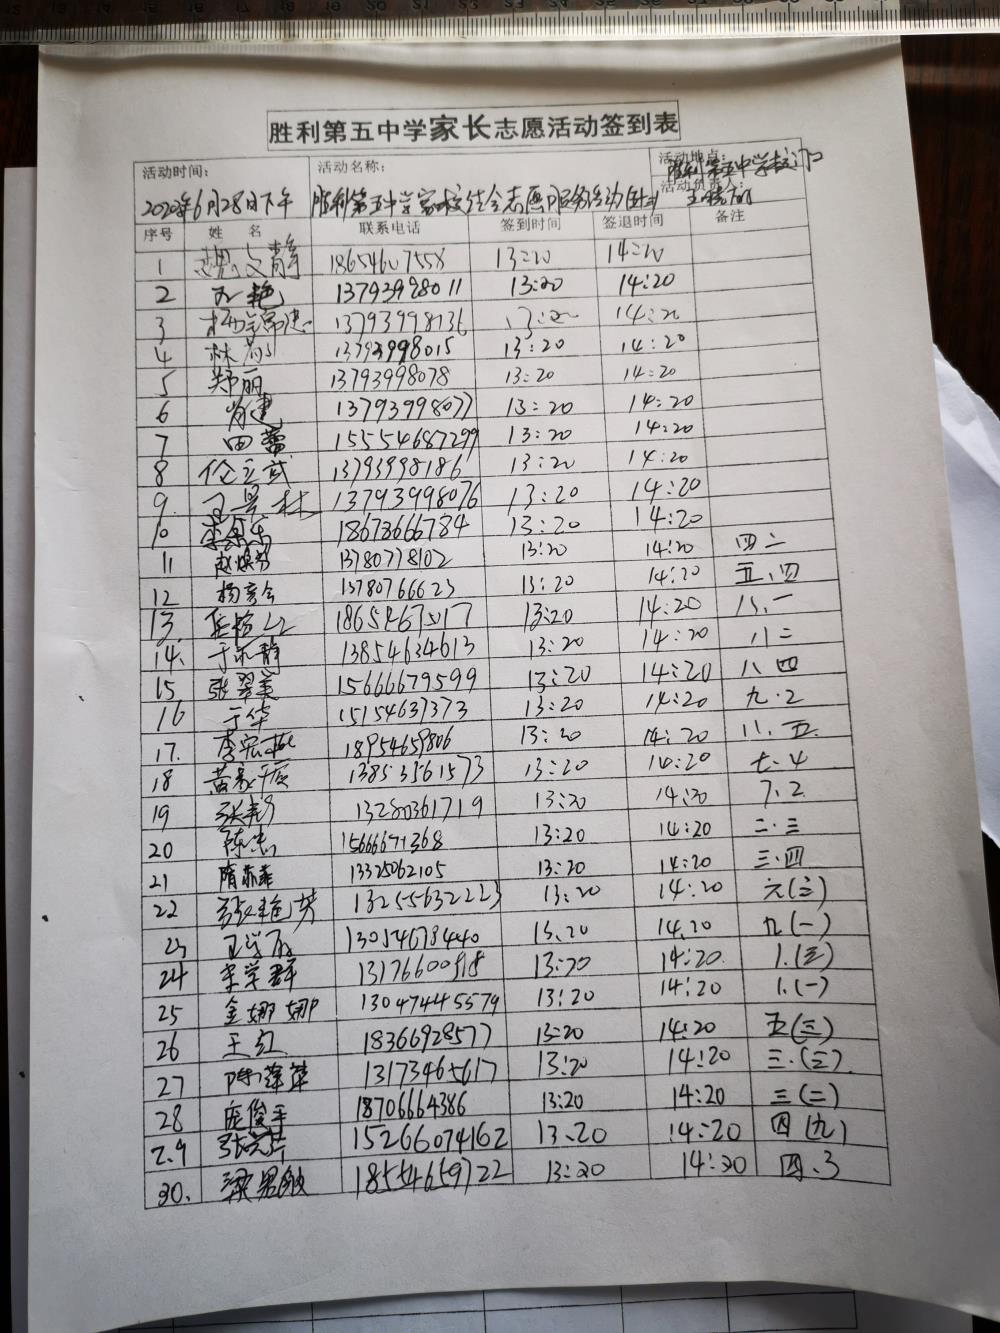 胜利第五中学家长志愿活动签到表
活动时间： 活动名称： 活动地点：胜利第五中学校门口
2020年6月28日下午 胜利第五中学家校社会志愿服务活动 活动负责人：
序号 姓名 联系电话 签到时间 签退时间 备注
1 文静 13:20 14:20
2 艳 13793998011 13:20 14:20
3 13793998136 13:20 14:20
4 林 13793998015 13:20 14:20
5 郑丽 13793998078 13:20 14:20
6 肖建 13793998077 13:20 14:20
7 田蕾 15554687299 13:20 14:20
8 伦立武 13793998186 13:20 14:20
9. 王景林 13793998076 13:20 14:20
10 18673666784 13:20 14:20
11 赵 13780778102 13:20 14:20 四二
12 杨 13780766623 13:20 14:20 五、四
13 18654671017 13:20 14:20 八、一
14. 于 静 13854634613 13:20 14:20 八二
15 张翠美 15666679599 13:20 14:20 八四
16 于华 15154637373 13:20 14:20 九·2
17. 李宏 18954659806 13:20 14:20 八、五
18 黄 13853561573 13:20 14:20 七·4
19 张 13280361719 13:20 14:20 7、2
20 陈 15666671368 13:20 14:20 二·三
21 隋 13325062105 13:20 14:20 三·四
22 张艳芳 13255632223 13:20 14:20 六(三)
23 王 13054678440 13.20 14.20 九(一)
24 李学群 13:20 14:20 1.(三)
25 金娜娜 13047445579 13:20 14:20 1.(一)
26 王红 18366928577 13:20 14:20 五(三)
27 陈 13173465617 13:20 14:20 三·(三)
28 庞俊平 18706664386 13:20 14:20 三(二)
29 张 15266074162 13、20 14:20 四(九)
30. 梁 敏 18554659722 13:20 14:20 四、3